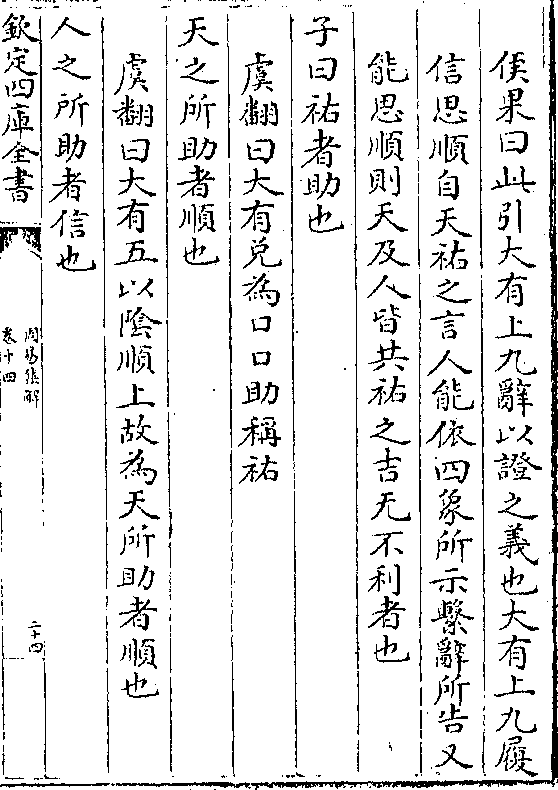 侯果曰此引大有上九辭以證之義也大有上九履
信思順自天祐之言人能依四象所示繫辭所告又
能思順則天及人皆共祐之吉无不利者也
子曰祐者助也
虞翻曰大有兌為口口助稱祐
天之所助者順也
虞翻曰大有五以陰順上故為天所助者順也
人之所助者信也
欽定四庫全書
周易集解
卷十四
二十四